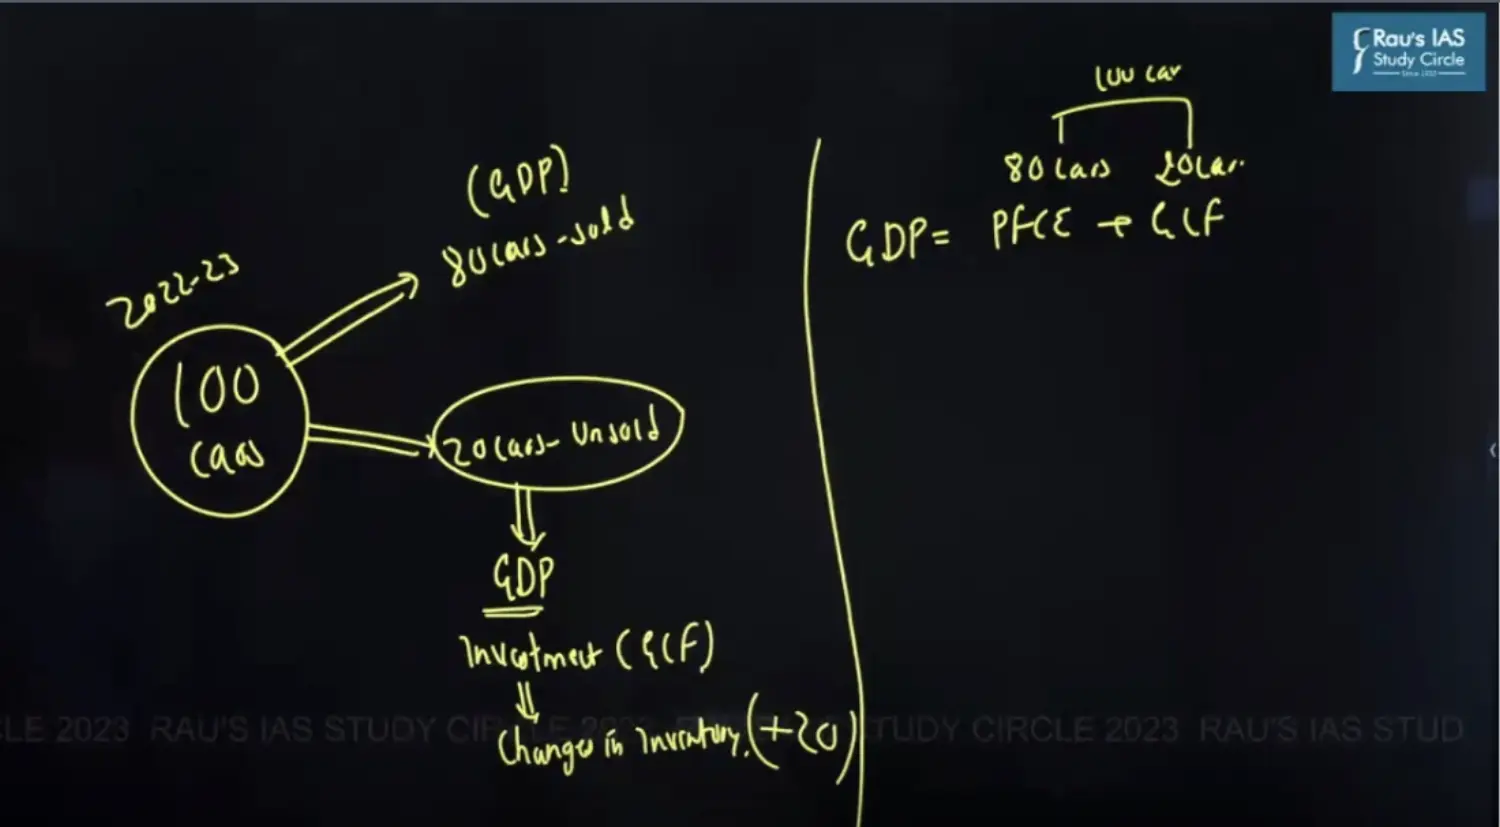 Rau's IAS
Study Circle
Since 1953
2022-23
100
cars
(GDP)
80 cars - sold
20 cars - Unsold
GDP
Investment (GCF)
Changes in Inventory. (+20)
100 car
80 cars 20 car
GDP = PFCE + GCF
CLE 2023 RAU'S IAS STUDY CIRCLE 2023 STUDY CIRCLE 2023 RAU'S IAS STUD